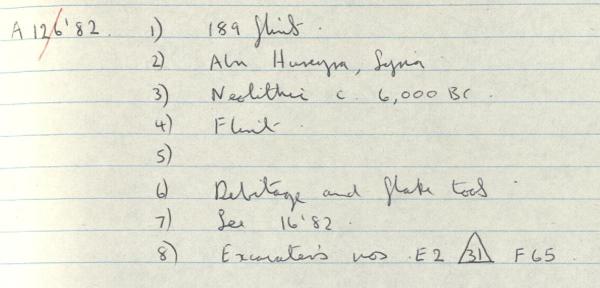 A 126'82. 1) 189 flints.
2) Abu Hureyra, Syria
3) Neolithic c. 6,000 BC.
4) Flint.
5)
6) Debitage and flake tools.
7) See 16'82.
8) Excavator's nos. E2 31 F65